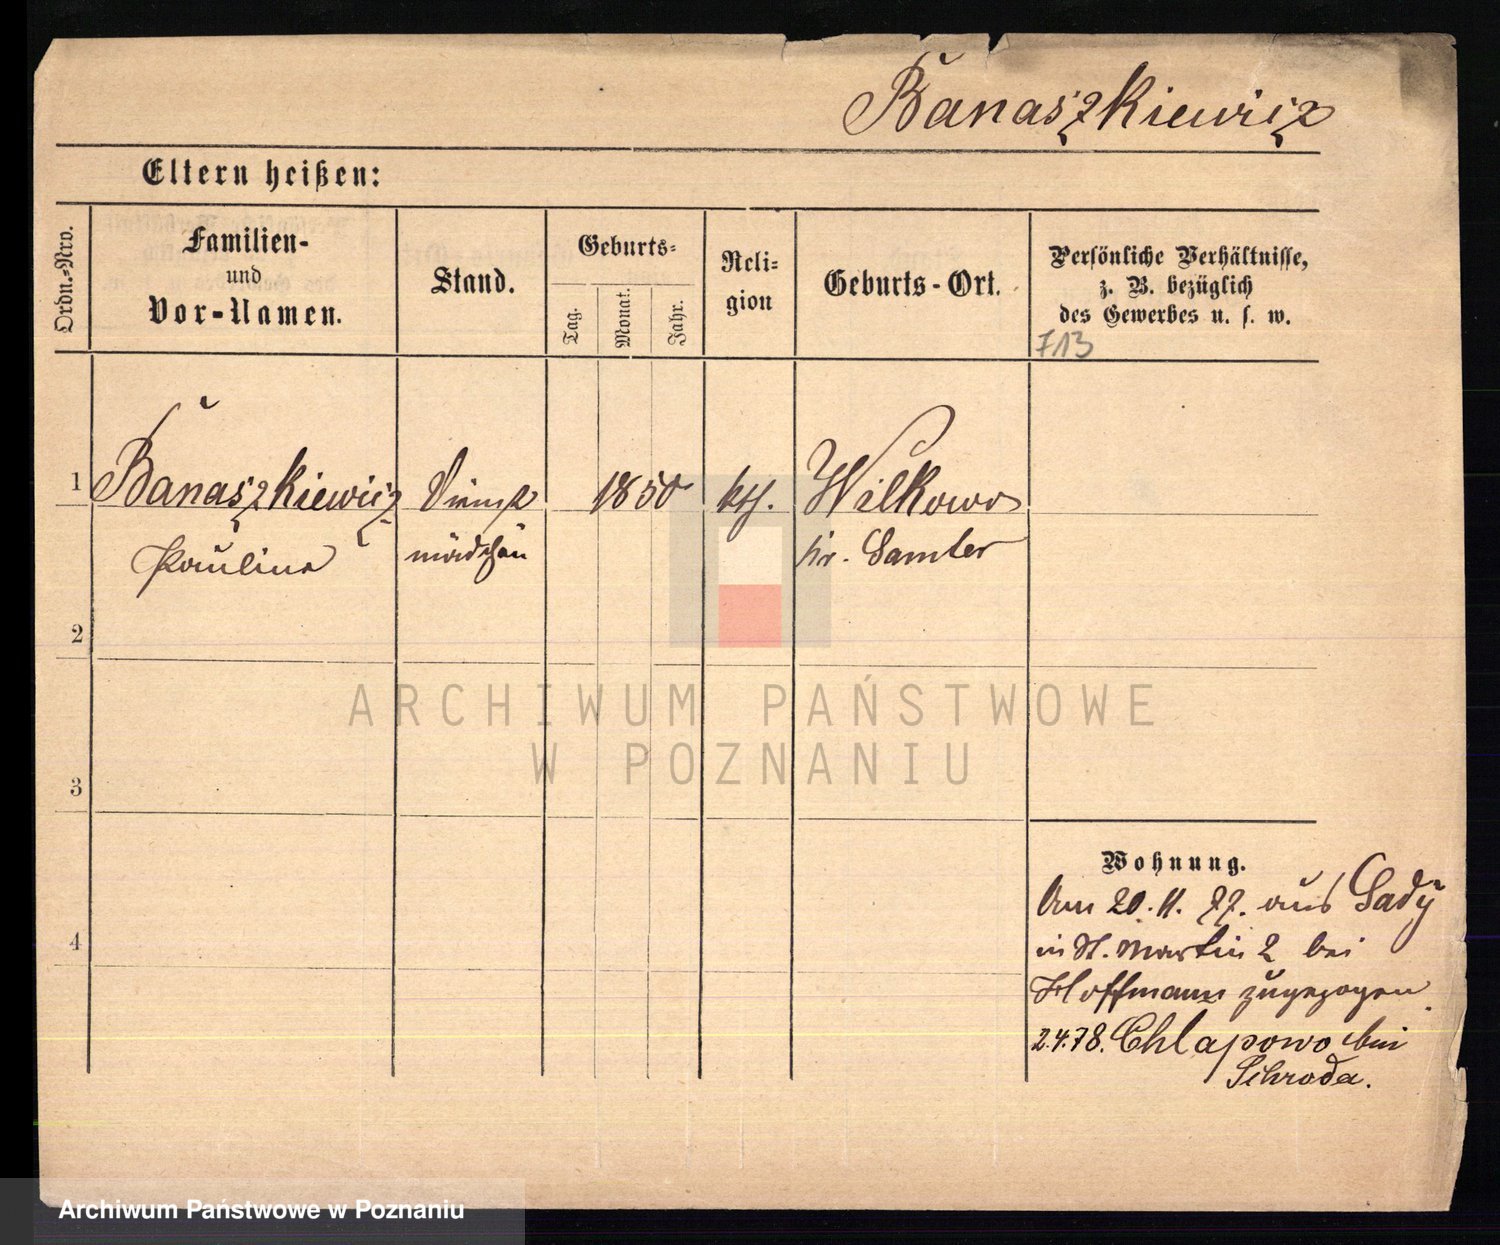 Banaszkiewicz
Eltern heißen:
Ordn.-Nro.
Familien-
und
Vor-Namen.
Stand.
Geburts-
Tag.
Monat.
Jahr.
Reli-
gion
Geburts-Ort.
Persönliche Verhältnisse,
z. B. bezüglich
des Gewerbes u. s. w.
713
1
Banaszkiewicz
Dienst
1850
kth.
Wilkowo
Paulina
mädchen
Kr. Samter
2
ARCHIWUM PAŃSTWOWE
W POZNANIU
3
Wohnung.
Am 20.11.77. aus Sady
4
in St. Martin 2 bei
Hoffmann zugezogen.
2.4.78. Chlapowo bei
Schroda.
Archiwum Państwowe w Poznaniu